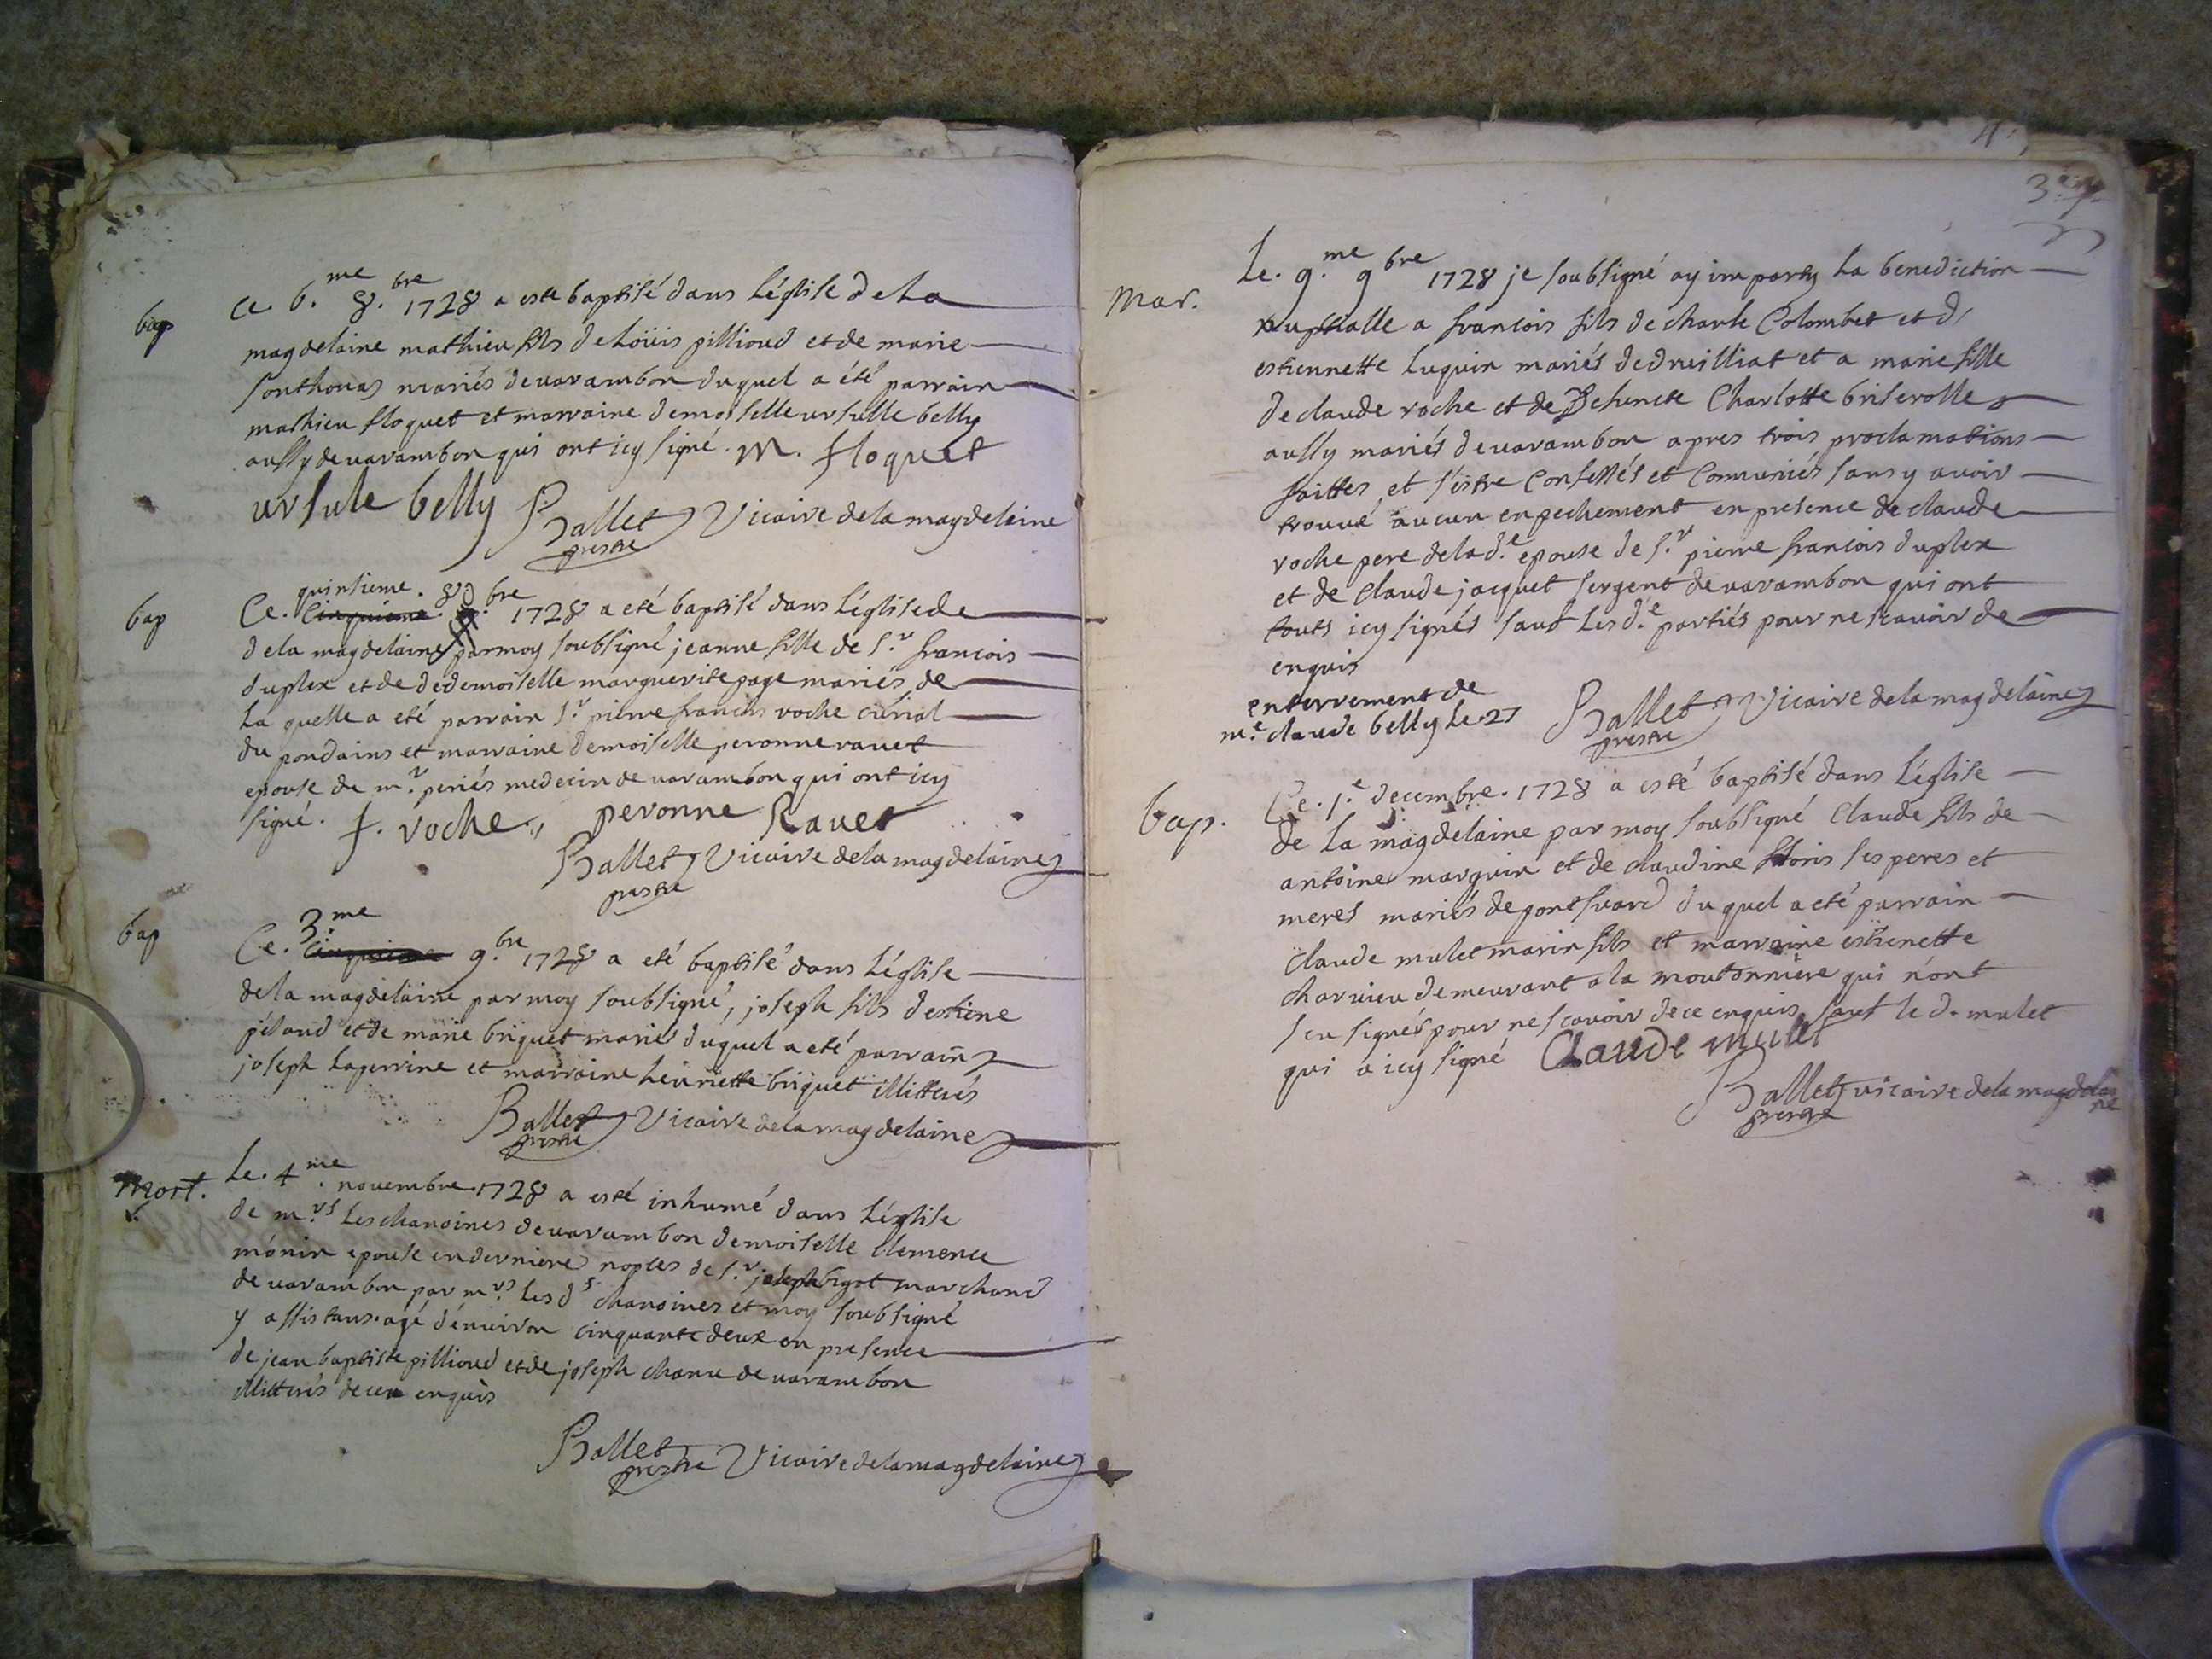 bap
Ce 6.me 8.bre 1728 a esté baptisé dans L'église de La
magdelaine mathieu fils de Loüis pillioud et de marie
sonthonas mariés de varambon duquel a été parrain
mathieu floquet et marraine demoiselle ursulle belly
aussy de varambon qui ont icy signé. M. floquet
ursule belly Ballet Vicaire de la magdelaine
prestre
bap
quinsieme. 8
Ce. cinquieme bre 1728 a eté baptisé dans L'église de
de la magdelaine par moy soubsigné jeanne fille de s.r francois
duplex et de demoiselle marguerite page mariés de
La quelle a eté parrain s.r pierre francois roche curial
du pondains et marraine demoiselle peronne ravet
epouse de m.r periés medecin de varambon qui ont icy
signé. f. roche, peronne Ravet
Ballet Vicaire de la magdelaine
prestre
bap
3.me
Ce. cinquieme 9.bre 1728 a eté baptisé dans L'église
de la magdelaine par moy soubsigné, joseph fils destiene
péloud et de marie briquet mariés duquel a eté parrain
joseph Laperrine et marraine henriette briquet illitterés
Ballet Vicaire de la magdelaine
prestre
mort.
Le. 4.me novembre. 1728 a esté inhumé dans L'église
de m.rs Les chanoines de varambon demoiselle Clemence
mónin epouse en derniere nopces de s.r joseph bigot marchand
de varambon par m.rs Les d.s chanoines et moy soubsigné
y assistans. agé d'énuiron cinquante deux en presence
de jean baptiste pillioud et de joseph chanu de varambon
illitterés de ce enquis
Ballet Vicaire de la magdelaine
prestre
3
mar.
Le. 9.me 9 bre 1728 je soubsigné ay imparty La benediction
nuptialle a francois fils de charle Colombet et d
estiennette Luquin mariés de druilliat et a marie fille
de claude roche et de Defuncte Charlotte briserolle
aussy mariés de varambon apres trois proclamations
faittes, et s'éstre Confessés et Communiés sans y avoir
trouvé aucun enpechement en presence de claude
roche pere de la d.e epouse de s.r pierre francois duplex
et de Claude jacquet sergent de varambon qui ont
touts icy signés sauf Les d.e partiés pour ne scavoir de
enquis
enterrement de
m.e claude belly Le 27
Ballet Vicaire de la magdelaine
prestre
bap.
Ce. 1.e decembre. 1728 a esté baptisé dans L'église
de La magdelaine par moy soubsigné Claude fils de
antoine marguin et de claudine ses peres et
meres mariés de duquel a eté parrain
claude mulet marin fils et marraine estienette
charvieu demeurant a la moutonnière qui n'ont
sçu signés pour ne scavoir de ce enquis, sauf le d. mulet
qui a icy signé Claude mulet
Ballet vicaire de la magdelai
ne
prestre